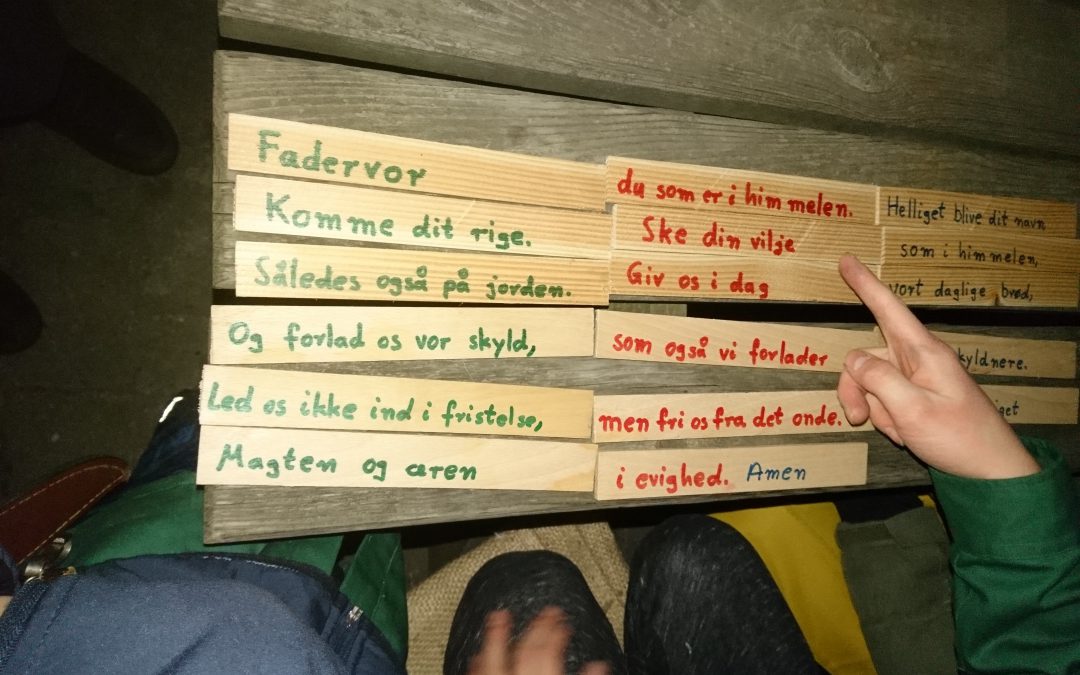 Fadervor du som er i himmelen. Helliget blive dit navn
Komme dit rige. Ske din vilje som i himmelen,
Således også på jorden. Giv os i dag vort daglige brød,
Og forlad os vor skyld, som også vi forlader kyldnere.
Led os ikke ind i fristelse, men fri os fra det onde.
Magten og æren i evighed. Amen